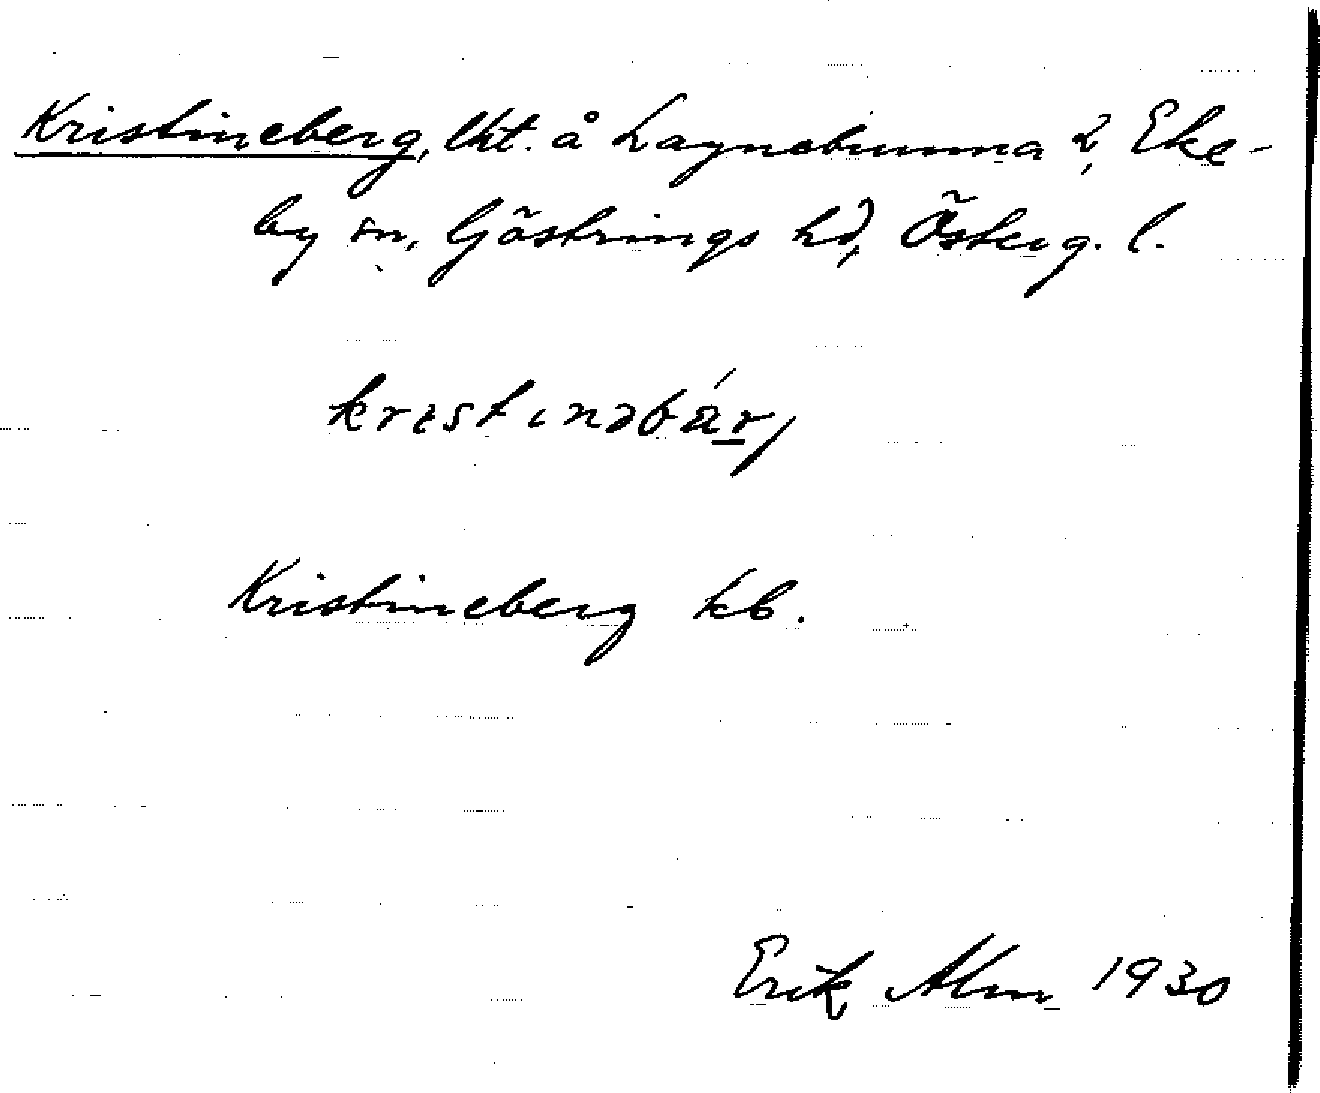 Kristineberg, lht. å Lagnebrunna 2, Eke-
by sn, Göstrings hd, Österg. l.
krɛstınəbär,
Kristineberg kb.
Erik Alm 1930